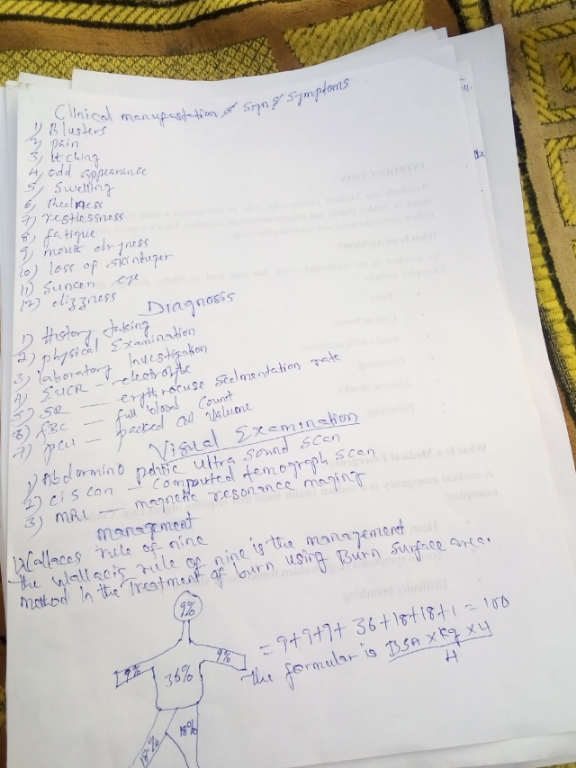 Clinical manufestation of sign & symptoms
1) Blusters
2, pain
3, Itching
4, odd appearance
5, Swelling
6,
7) restlessness
8, fatique
9, mouth dryness
10) loss of skintuger
11) suncen eye
12) dizziness
Diagnosis
1) History taking
2) physical Examination
3) laboratory Investigation
4) EUCR - electrolyte
5) SR - erythrocuse Sedmentation rate
6) FBC - full blood count
7) PCU - packed cell volume
Visual Examination
1) Abdormino peltic ultra sound scan
2) ciscan - computed temograph scan
3) MRI - magnetic resonance maging
management
Wallaces rule of nine
the wallacis rule of nine is the management
method in the Treatment of burn using Burn surface area.
9%
9% 36% 9%
18% 18%
= 9+9+9+ 36+18+18+1 = 100
the formular is BSA x Kg x 4
4